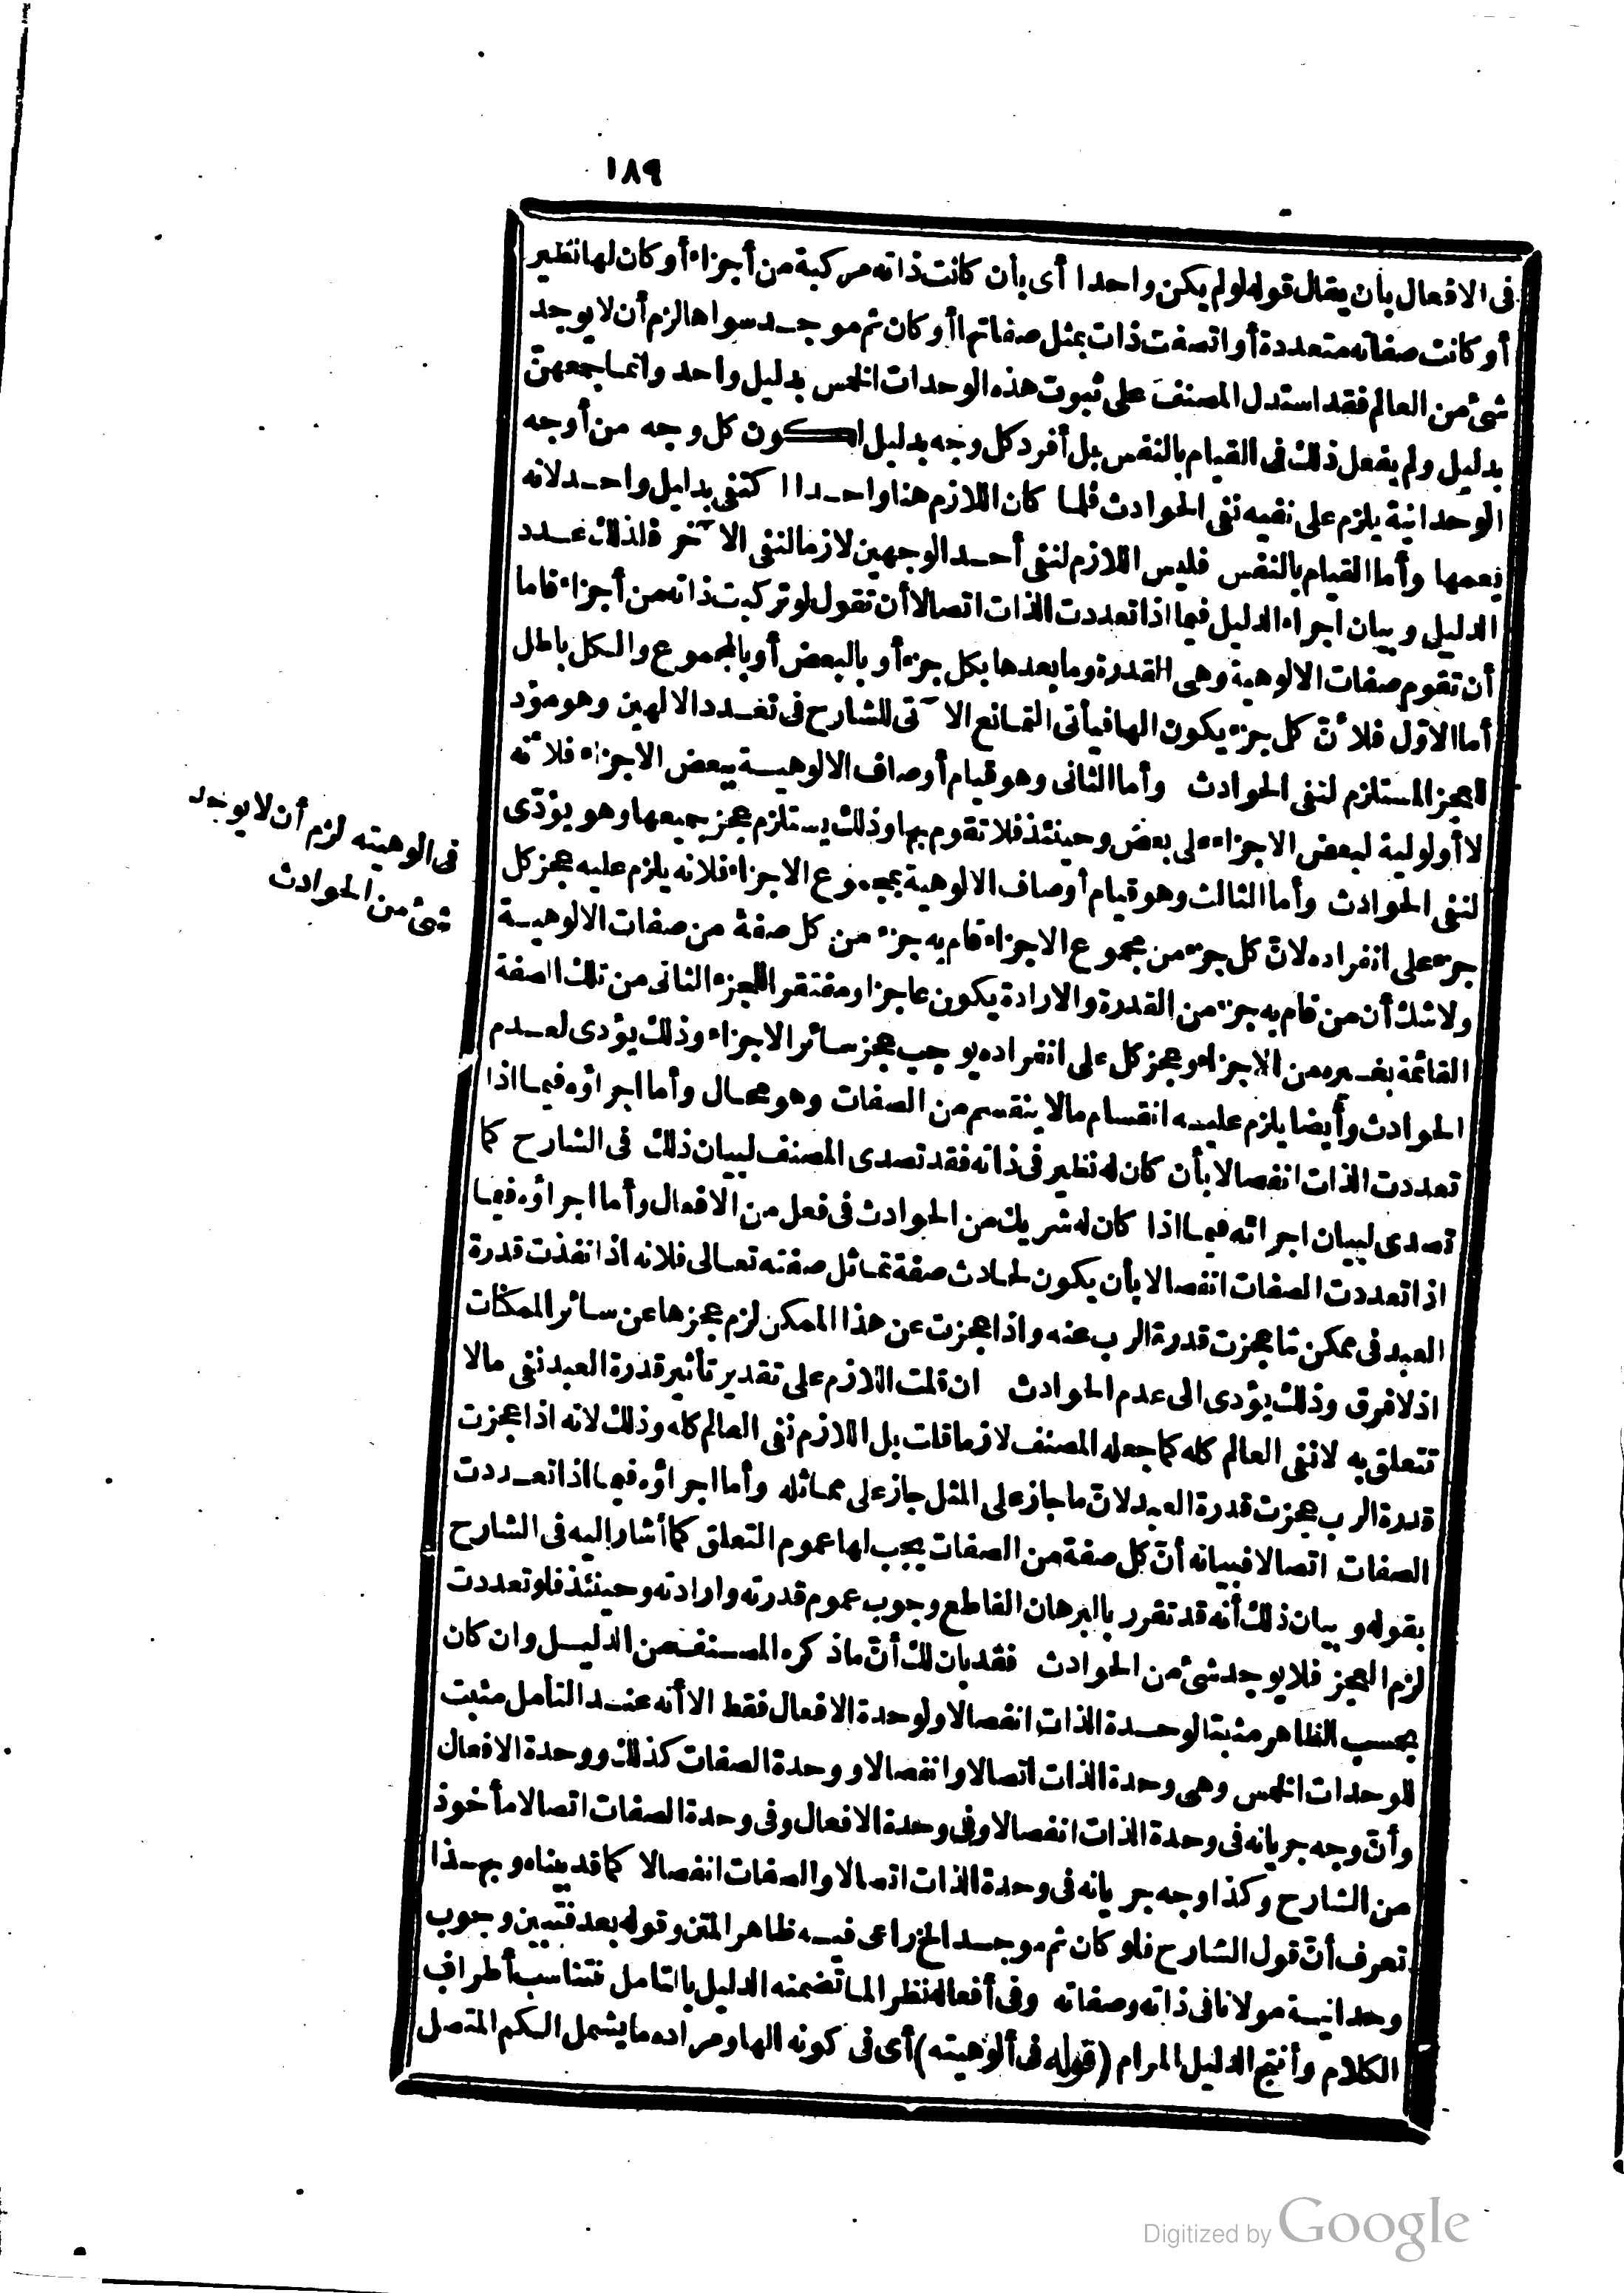 ١٨٩
فى الافعال بأن يقال قوله لو لم يكن واحدا أى بأن كانت ذاته مركبة من أجزاء أو كان لها نظير
أو كانت صفاته متعددة أو اتصفت ذات بمثل صفاتها أو كان ثم موجد سواها لزم أن لا يوجد
شئ من العالم فقد استدل المصنف على ثبوت هذه الوحدات الخمس بدليل واحد وانما جمعهن
بدليل ولم يفعل ذلك فى القيام بالنفس بل أفرد كل وجه بدليل لكون كل وجه من أوجه
الوحدانية يلزم على نفيه نفى الحوادث فلما كان اللازم هنا واحدا اكتفى بدليل واحد لانه
يعمها وأما القيام بالنفس فليس اللازم لنفى أحد الوجهين لازما لنفى الآخر فلذلك عدد
الدليل وبيان اجراء الدليل فيما اذا تعددت الذات اتصالا أن تقول لو تركبت ذاته من أجزاء فاما
أن تقوم صفات الالوهية وهى القدرة وما بعدها بكل جزء أو بالبعض أو بالمجموع والكل باطل
أما الاوّل فلأنّ كل جزء يكون الها فيأتى التمانع الآتى للشارح فى تعدد الالهين وهو مؤد
للعجز المستلزم لنفى الحوادث وأما الثانى وهو قيام أوصاف الالوهية ببعض الاجزاء فلأنه
لا أولوية لبعض الاجزاء على بعض وحينئذ فلا تقوم بها وذلك يستلزم عجز جميعها وهو يؤدّى
لنفى الحوادث وأما الثالث وهو قيام أوصاف الالوهية بمجموع الاجزاء فلانه يلزم عليه عجز كل
جزء على انفراده لانّ كل جزء من مجموع الاجزاء قام به جزء من كل صفة من صفات الالوهية
ولا شك أن من قام به جزء من القدرة والارادة يكون عاجزا ومفتقرا للجزء الثانى من تلك الصفة
القائمة بغيره من الاجزاء وعجز كل على انفراده يوجب عجز سائر الاجزاء وذلك يؤدى لعدم
الحوادث وأيضا يلزم عليه انقسام ما لا ينقسم من الصفات وهو محال وأما اجراؤه فيما اذا
تعددت الذات انفصالا بأن كان له نظير فى ذاته فقد تصدى المصنف لبيان ذلك فى الشارح كما
تصدى لبيان اجرائه فيما اذا كان له شريك من الحوادث فى فعل من الافعال وأما اجراؤه فيما
اذا تعددت الصفات انفصالا بأن يكون لحادث صفة تماثل صفته تعالى فلانه اذا نفذت قدرة
العبد فى ممكن مّا عجزت قدرة الرب عنه واذا عجزت عن هذا الممكن لزم عجزها عن سائر الممكنات
اذ لا فرق وذلك يؤدى الى عدم الحوادث ان قلت اللازم على تقدير تأثير قدرة العبد نفى ما لا
تتعلق به لا نفى العالم كله كما جعله المصنف لازما قلت بل اللازم نفى العالم كله وذلك لانه اذا عجزت
قدرة الرب عجزت قدرة العبد لانّ ما جاز على المثل جاز على مماثله وأما اجراؤه فيما اذا تعددت
الصفات اتصالا فبيانه أنّ كل صفة من الصفات يجب لها عموم التعلق كما أشار اليه فى الشارح
بقوله وبيان ذلك أنه قد تقرر بالبرهان القاطع وجوب عموم قدرته وارادته وحينئذ فلو تعددت
لزم العجز فلا يوجد شئ من الحوادث فقد بان لك أنّ ما ذكره المصنف من الدليل وان كان
بحسب الظاهر مثبتا لوحدة الذات انفصالا ولوحدة الافعال فقط الا أنه عند التأمل مثبت
للوحدات الخمس وهى وحدة الذات اتصالا وانفصالا ووحدة الصفات كذلك ووحدة الافعال
وأنّ وجه جريانه فى وحدة الذات انفصالا وفى وحدة الافعال وفى وحدة الصفات اتصالا مأخوذ
من الشارح وكذا وجه جريانه فى وحدة الذات اتصالا والصفات انفصالا كما قد بيناه وبهذا
تعرف أنّ قول الشارح فلو كان ثم موجد الخ راعى فيه ظاهر المتن وقوله بعد فتبين وجوب
وحدانية مولانا فى ذاته وصفاته وفى أفعاله نظرا لما تضمنه الدليل بالتامل فتناسب أطراف
الكلام وأنتج الدليل المرام (قوله فى ألوهيته) أى فى كونه الها ومراده ما يشمل الكم المتصل
فى الوهيته لزم أن لا يوجد
شئ من الحوادث
Digitized by Google